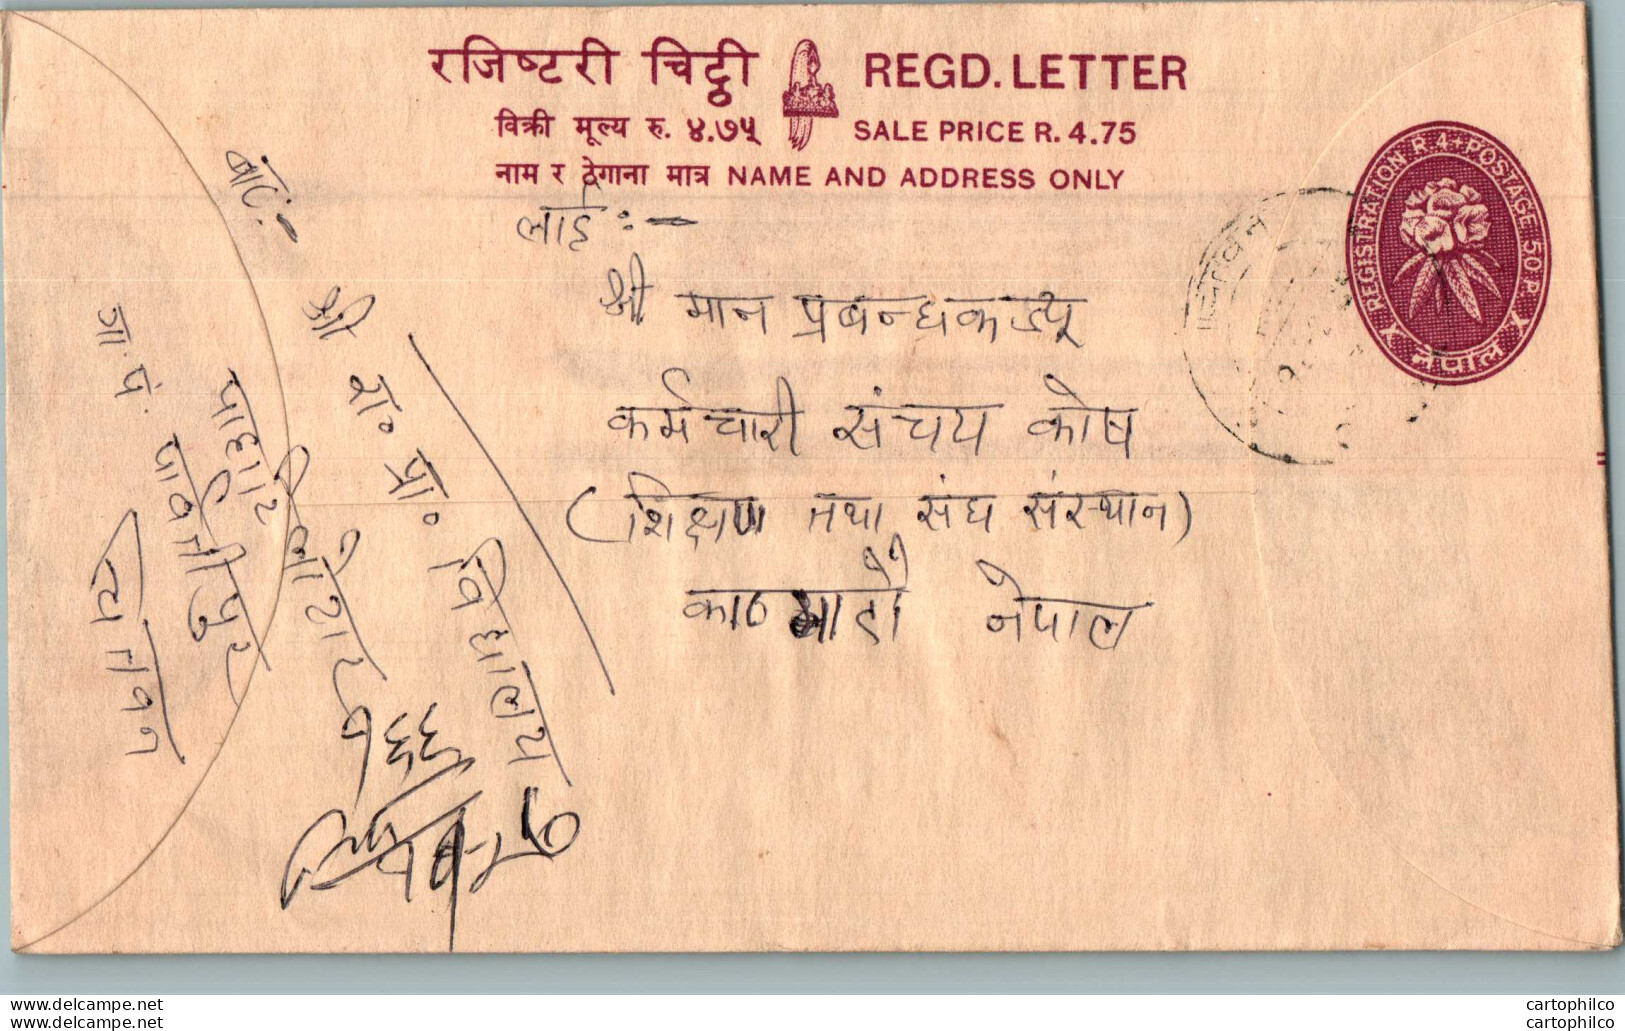 रजिष्टरी चिट्ठी REGD. LETTER
विक्री मूल्य रु. ४.७५ SALE PRICE R. 4.75
नाम र ठेगाना मात्र NAME AND ADDRESS ONLY
REGISTRATION R 4 + POSTAGE 50 P.
नेपाल
लाई :-
श्री मान प्रबन्धकज्यू
कर्मचारी संचय कोष
(शिक्षण तथा संघ संस्थान)
काठमाडौं नेपाल
बाट:-
श्री रा० प्रा० विद्यालय
जा. पं. पार्वतीपुर
चितवन
cartophilco.net
cartophilco.net
cartophilco
cartophilco